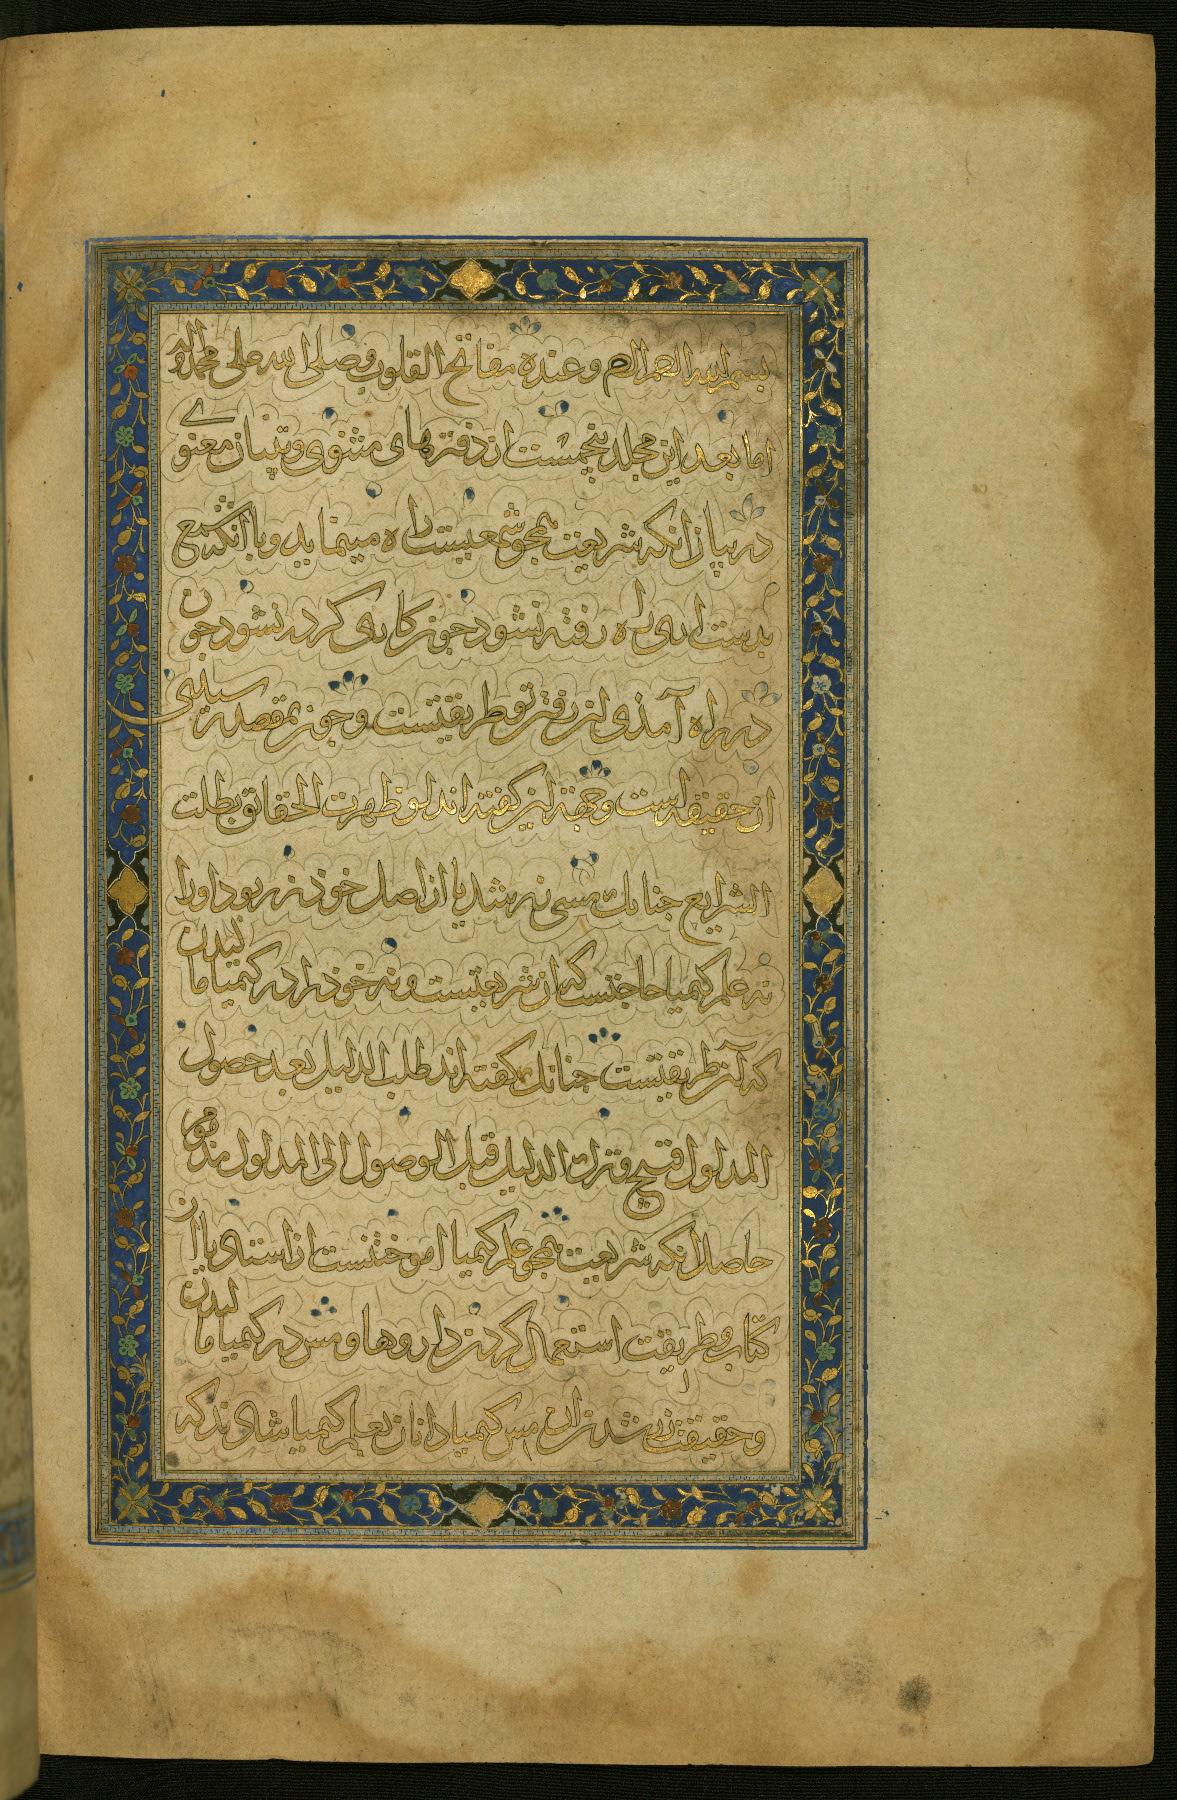 بسم الله الرحمن الرحیم وعنده مفاتح القلوب وصلی الله علی محمد وآله
اما بعد این مجلد پنجمست از دفترهای مثنوی وتبیان معنوی
در بیان انکه شریعت همچو شمعیست راه مینماید وبی انکه شمع
بدست اری راه رفته نشود جون کاری کرده نشود جون
در راه آمذی این رفتن تو طریقتست وجون بمقصد رسیدی
ان حقیقتست وجهة این کفته اند لو ظهرت الحقائق بطلت
الشرایع جنانک مسی زر شد یا از اصل خوذ زر بوذ اورا
نه علم کیمیا حاجتست که ان شریعتست ونه خوذ را در کیمیا مالیدن
که آن طریقتست جنانک کفته اند طلب الدلیل بعد حصول
المدلول قبیح وترک الدلیل قبل الوصول الی المدلول مذموم
حاصل انکه شریعت همجو علم کیمیا اموختنست از استاذ یا از
کتاب وطریقت استعمال کردن داروها ومس در کیمیا مالیدن
وحقیقت زر شدن ان مس کیمیا دانان بعلم کیمیا شادند که